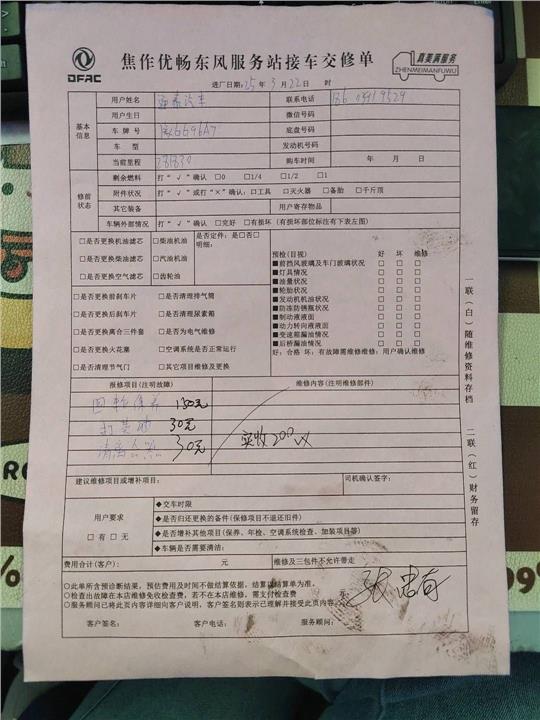 DFAC
焦作优畅东风服务站接车交修单
真美满服务
ZHENMEIMANFUWU
进厂日期:25年3月22日 时
基本信息
用户姓名 联系电话
用户生日 微信号码
车牌号 底盘号码
车型 发动机号码
当前里程 281830 购车时间 年 月 日
修前状态
剩余燃料 打"√"确认 □0 □1/4 □1/2 □1
附件状况 打"√"或打"×"确认:□工具 □灭火器 □备胎 □千斤顶
其它装备 用户寄存物品
车辆外部情况 打"√"确认 □完好 □有损坏(有损坏部位标注有下表左图)
□是否更换机油滤芯 □柴油机油
□是否更换柴油滤芯 □汽油机油
□是否更换空气滤芯 □齿轮油
是否定件:是□否□
明细:
□是否更换前刹车片 □是否清理排气筒
□是否更换后刹车片 □是否清理尿素箱
□是否更换离合三件套 □是否为电气维修
□是否更换火花塞 □空调系统是否正常运行
□是否清理节气门 □其它项目维修及更换
预检(目视) 好 坏 维修
■前挡风玻璃及车门玻璃状况 □ □ □
■灯具情况 □ □ □
■油量状况 □ □ □
■轮胎状况 □ □ □
■发动机机油状况 □ □ □
■防冻防锈瓶状况 □ □ □
■制动液液面 □ □ □
■动力转向液液面 □ □ □
■变速箱漏油情况 □ □ □
■后桥漏油情况 □ □ □
好:合格 坏:有故障需维修维修:用户确认维修
报修项目(注明故障) 维修内容(注明维修部件)
四轮保养 150元
打黄油 30元
30元
实收200
建议维修项目或增补项目: 司机确认签字:
用户要求
□有□无
◆交车时限
◆是否归还更换的备件(保修项目不退还旧件)
◆是否增补其他项目(保养、年检、空调系统检查、加装项目等)
◆车辆是否需要清洁:
费用合计(客户): 元 维修及三包件不允许带走
○此单所含预诊断结果,预估费用及时间不做结算依据,结算以结算单为准。
○检查出故障在本店维修免收检查费,若不在本店维修,需支付检查费
○服务顾问已将此页内容详细向客户说明,客户签名则表示已理解并接受此页内容。
客户签名: 客户电话: 服务顾问:
一联(白)随维修资料存档 二联(红)财务留存